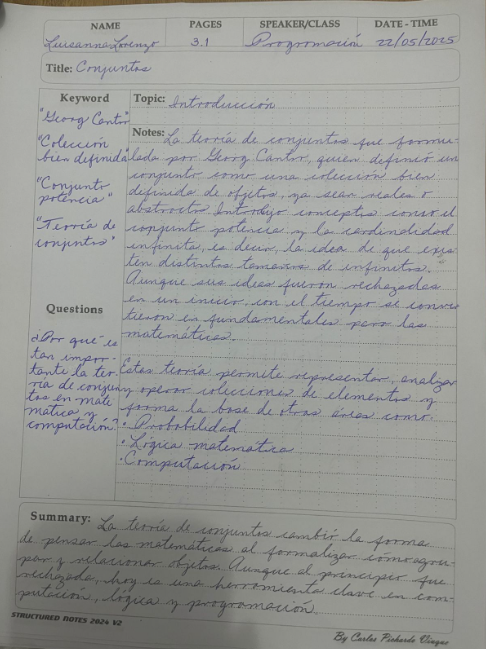 NAME PAGES SPEAKER/CLASS DATE - TIME
Luisanna Lorenzo 3.1 Programación 22/05/2025
Title: Conjuntos
Keyword
"Georg Cantor"
"Colección
bien definida"
"Conjunto
potencia"
"Teoría de
conjuntos"
Questions
¿Por qué es
tan impor-
tante la teo
ría de conjun
tos en mate
mática y
computación?
Topic: Introducción
Notes: La teoría de conjuntos fue formu-
lada por Georg Cantor, quien definió un
conjunto como una colección bien
definida de objetos, ya sean reales o
abstractos. Introdujo conceptos como el
conjunto potencia y la cardinalidad
infinita, es decir, la idea de que exis-
ten distintos tamaños de infinitos.
Aunque sus ideas fueron rechazadas
en un inicio, con el tiempo se convir
tieron en fundamentales para las
matemáticas.
Estas teoría permite representar, analizar
y operar colecciones de elementos y
forma la base de otras áreas como:
• Probabilidad
• Lógica matemática
• Computación
Summary: La teoría de conjuntos cambió la forma
de pensar las matemáticas al formalizar cómo agru-
par y relacionar objetos. Aunque al principio fue
rechazada, hoy es una herramienta clave en com-
putación, lógica y programación.
STRUCTURED NOTES 2024 V2
By Carlos Pichardo Viuque